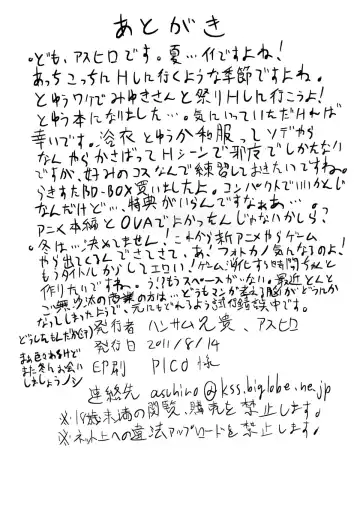 あとがき
。ども、アスヒロです。夏…イイですよね！
あっちこっちにHしに行くような季節ですよね。
とゆうワケでみゆきさんと祭りHしに行こうよ！
とゆう本になりました…。気にいっていただければ
幸いです。浴衣とゆうか和服ってソデやら
なんやらかさばってHシーンで邪魔でしかたない
ですが、好みのコスなんで練習しておきたいですね。
らきすたBD-BOX買いましたよ。コンパクトでいいかんじ
なんだけど…、特典がいらんですなぁぁ…。
アニメ本編とOVAでよかったんじゃないかしら？
。冬は…決めてません！これから新アニメやらゲーム
やら出てくるんでさてさて。あ、フォトカノ気になるのよ！
もうタイトルからしてエロい！ゲーム消化する時間ちゃんと
作りたいですね。う、もうスペースがない。最近とんと
ご無沙汰の
なってしまったようで、元にもどれるよう試行錯誤中です。
発行者 ハンサム兄貴、アスヒロ
発行日 2011/8/14
印刷 PICO様
連絡先 asuhiro@kss.biglobe.ne.jp
※18歳未満の閲覧、購売を禁止します。
※ネット上への違法アップロードを禁止します。